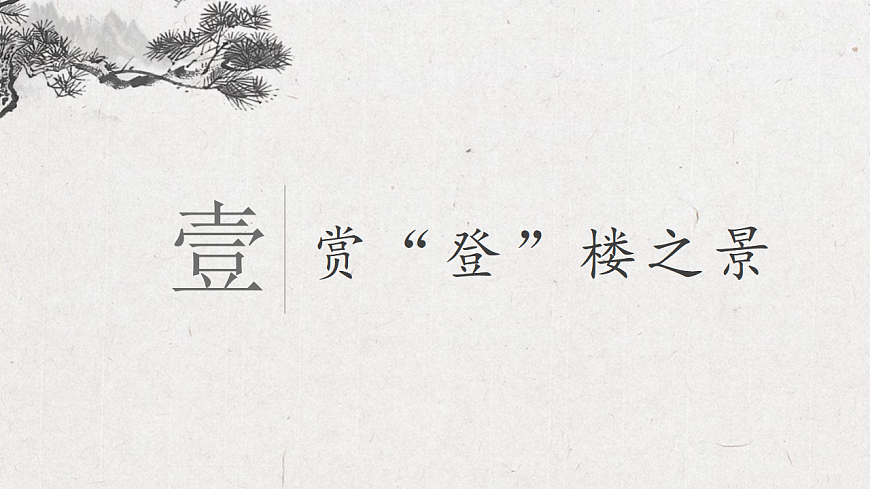 壹
赏“登”楼之景